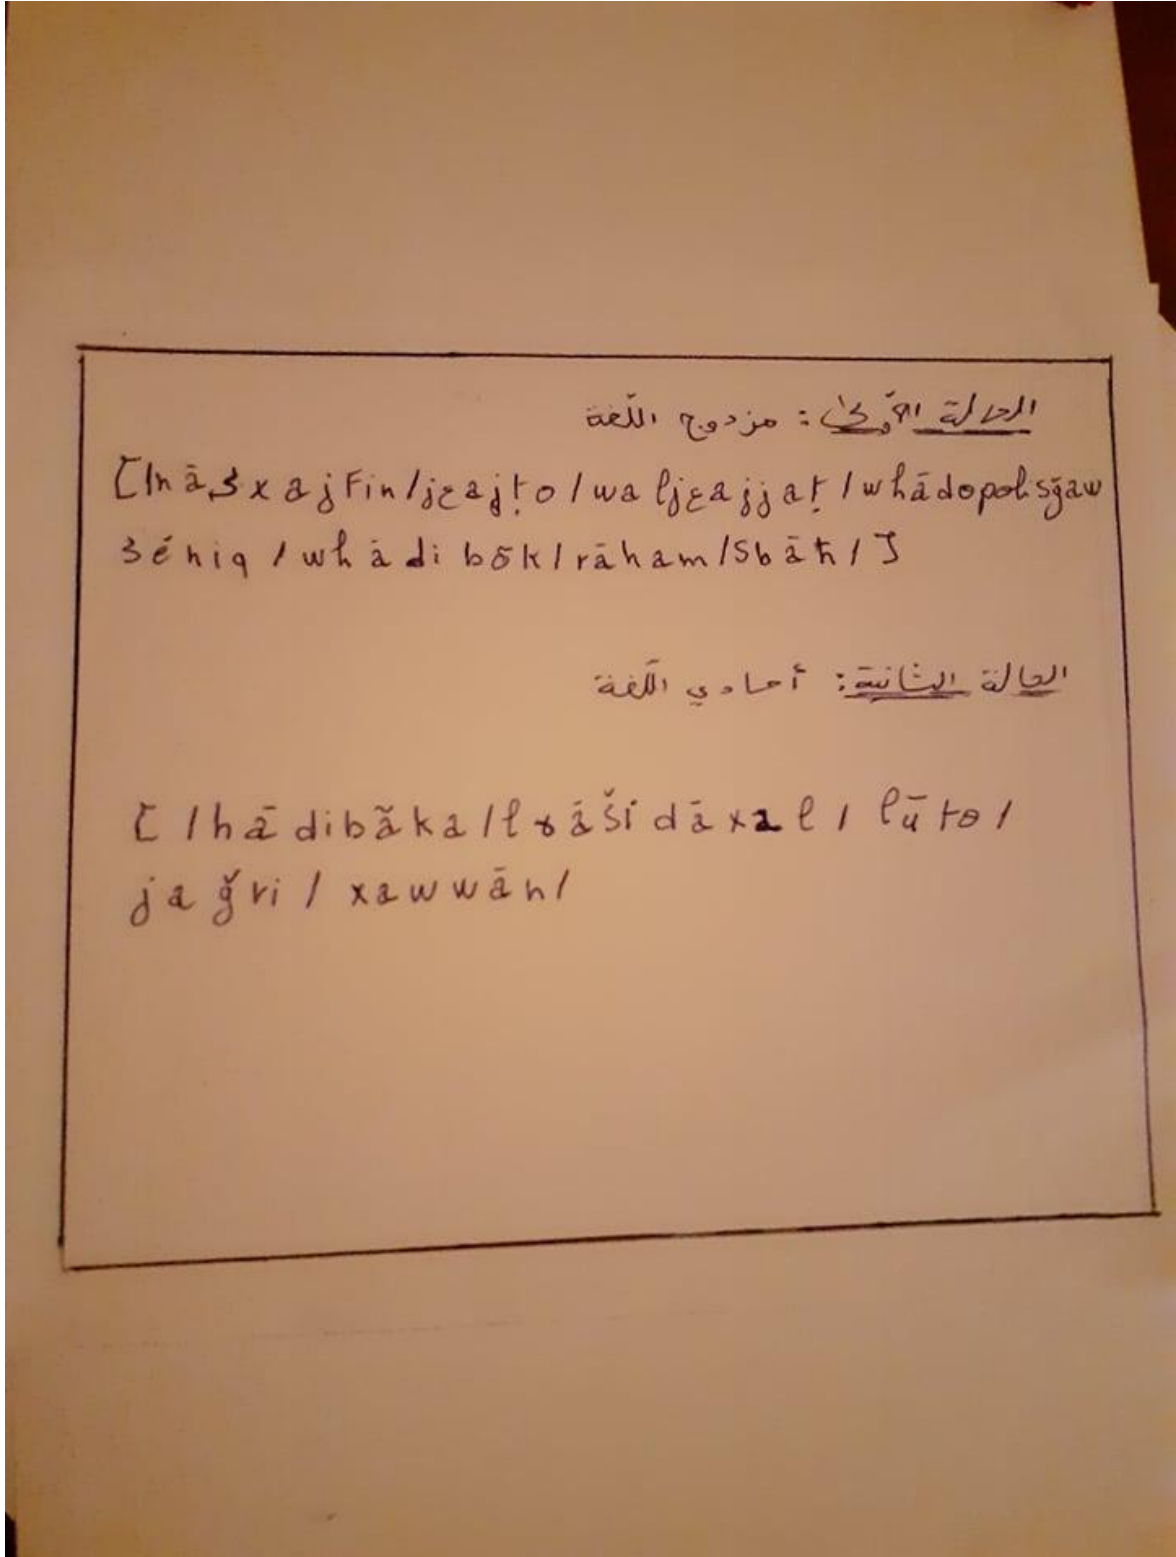 الحالة الأولى: مزدوج اللّغة
[/nās xajfin/jɛajṭo/wa ljɛajjaṭ/whādopolisǧaw
séniq/whādi bōk/rāham/Sbāħ/]
الحالة الثانية: أحادي اللّغة
[/hādibãka/l šídāxal/lūto/
jağri/xawwān/